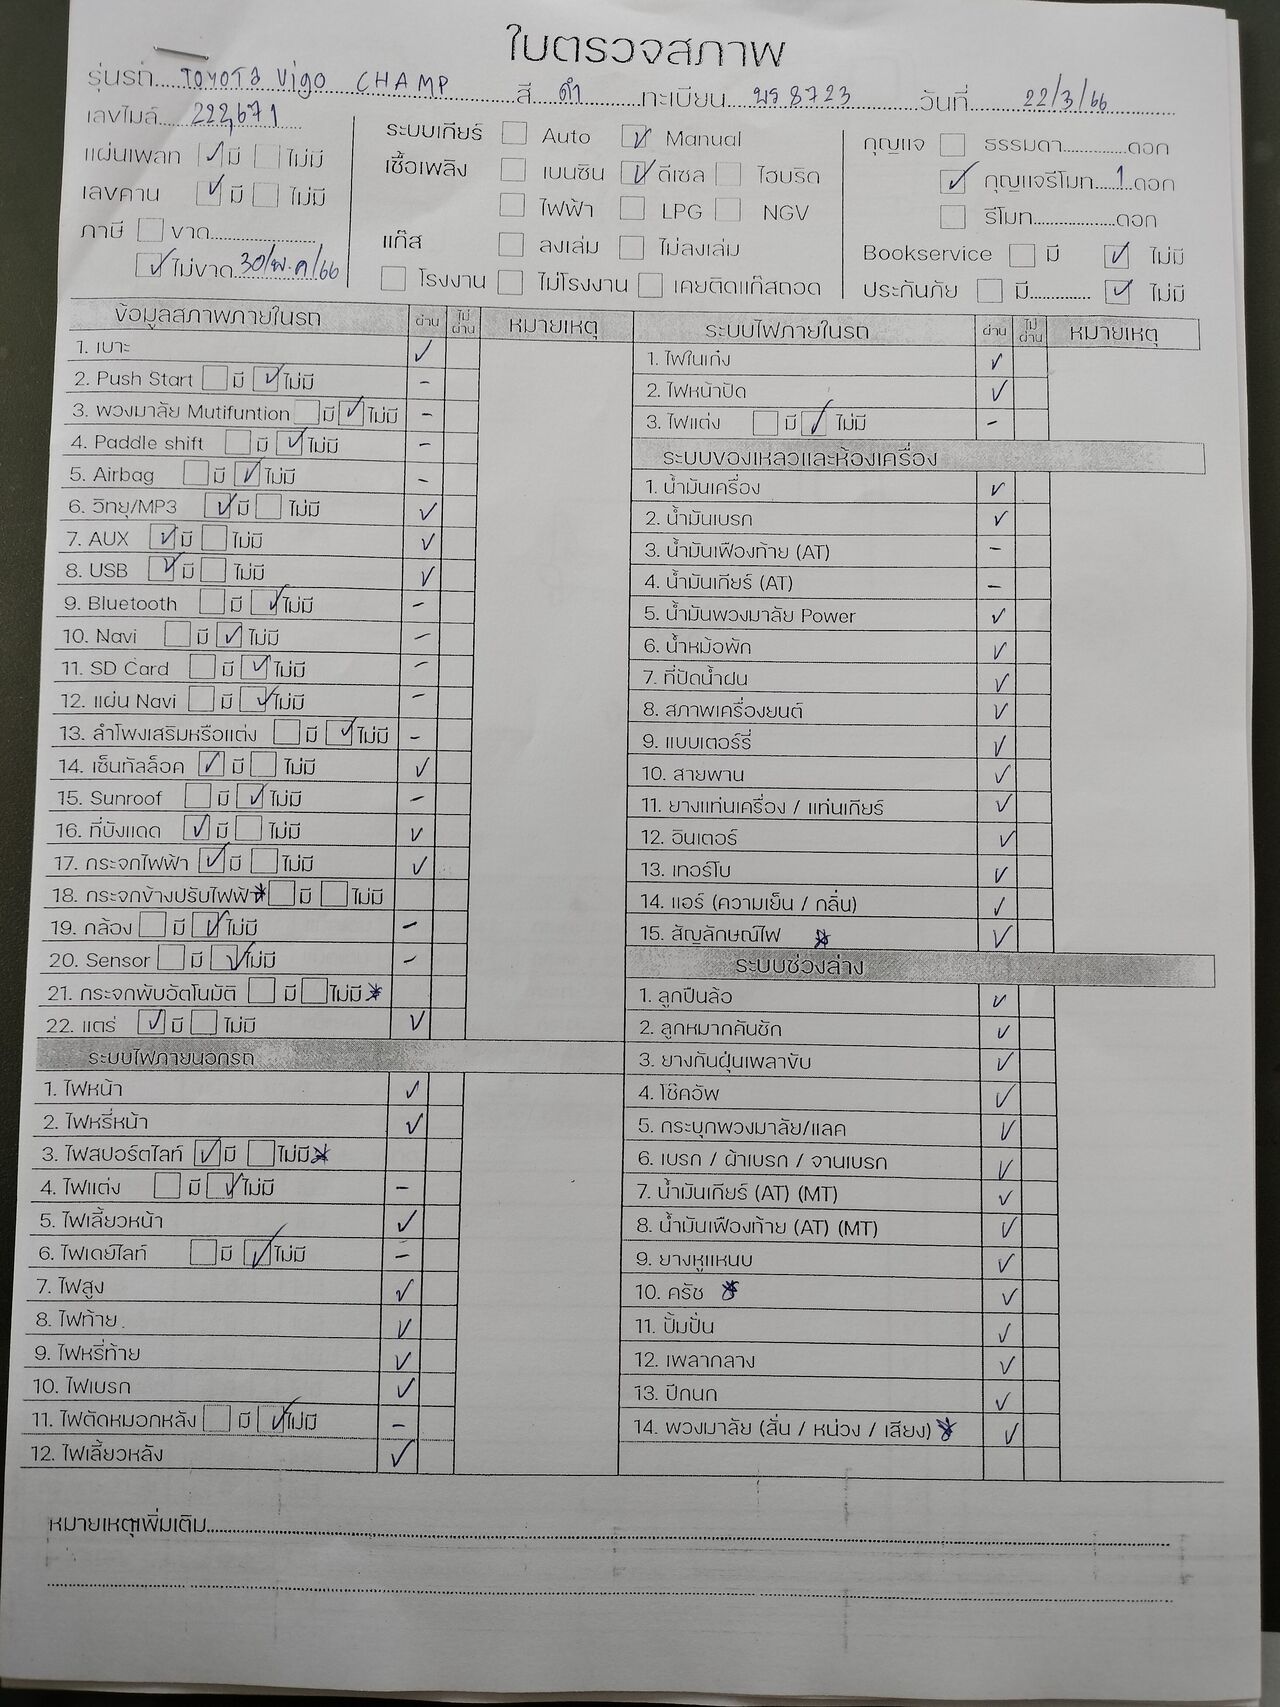 ใบตรวจสภาพ
รุ่นรถ TOYOTA Vigo CHAMP สี ดำ ทะเบียน 8723 วันที่ 22/3/66
เลขไมล์ 222,671
แผ่นเพลท ✓ มี ☐ ไม่มี
เลขคาน ✓ มี ☐ ไม่มี
ภาษี ☐ ขาด
✓ ไม่ขาด 30/พ.ค/66
ระบบเกียร์ ☐ Auto ✓ Manual
เชื้อเพลิง ☐ เบนซิน ✓ ดีเซล ☐ ไฮบริด
☐ ไฟฟ้า ☐ LPG ☐ NGV
แก๊ส ☐ ลงเล่ม ☐ ไม่ลงเล่ม
☐ โรงงาน ☐ ไม่โรงงาน ☐ เคยติดแก๊สถอด
กุญแจ ☐ ธรรมดา..........ดอก
✓ กุญแจรีโมท 1 ดอก
☐ รีโมท..........ดอก
Bookservice ☐ มี ✓ ไม่มี
ประกันภัย ☐ มี.......... ✓ ไม่มี
ข้อมูลสภาพภายในรถ ผ่าน ไม่ผ่าน หมายเหตุ
1. เบาะ ✓
2. Push Start ☐ มี ✓ ไม่มี -
3. พวงมาลัย Mutifuntion ☐ มี ✓ ไม่มี -
4. Paddle shift ☐ มี ✓ ไม่มี -
5. Airbag ☐ มี ✓ ไม่มี -
6. วิทยุ/MP3 ✓ มี ☐ ไม่มี ✓
7. AUX ✓ มี ☐ ไม่มี ✓
8. USB ✓ มี ☐ ไม่มี ✓
9. Bluetooth ☐ มี ✓ ไม่มี -
10. Navi ☐ มี ✓ ไม่มี -
11. SD Card ☐ มี ✓ ไม่มี -
12. แผ่น Navi ☐ มี ✓ ไม่มี -
13. ลำโพงเสริมหรือแต่ง ☐ มี ✓ ไม่มี -
14. เซ็นทัลล็อค ✓ มี ☐ ไม่มี ✓
15. Sunroof ☐ มี ✓ ไม่มี -
16. ที่บังแดด ✓ มี ☐ ไม่มี ✓
17. กระจกไฟฟ้า ✓ มี ☐ ไม่มี ✓
18. กระจกข้างปรับไฟฟ้า * ☐ มี ☐ ไม่มี
19. กล้อง ☐ มี ✓ ไม่มี -
20. Sensor ☐ มี ✓ ไม่มี -
21. กระจกพับอัตโนมัติ ☐ มี ☐ ไม่มี *
22. แตร่ ✓ มี ☐ ไม่มี ✓
ระบบไฟภายนอกรถ
1. ไฟหน้า ✓
2. ไฟหรี่หน้า ✓
3. ไฟสปอร์ตไลท์ ✓ มี ☐ ไม่มี *
4. ไฟแต่ง ☐ มี ✓ ไม่มี -
5. ไฟเลี้ยวหน้า ✓
6. ไฟเดย์ไลท์ ☐ มี ✓ ไม่มี -
7. ไฟสูง ✓
8. ไฟท้าย ✓
9. ไฟหรี่ท้าย ✓
10. ไฟเบรก ✓
11. ไฟตัดหมอกหลัง ☐ มี ✓ ไม่มี -
12. ไฟเลี้ยวหลัง ✓
ระบบไฟภายในรถ ผ่าน ไม่ผ่าน หมายเหตุ
1. ไฟในเก๋ง ✓
2. ไฟหน้าปัด ✓
3. ไฟแต่ง ☐ มี ✓ ไม่มี -
ระบบของเหลวและห้องเครื่อง
1. น้ำมันเครื่อง ✓
2. น้ำมันเบรก ✓
3. น้ำมันเฟืองท้าย (AT) -
4. น้ำมันเกียร์ (AT) -
5. น้ำมันพวงมาลัย Power ✓
6. น้ำหม้อพัก ✓
7. ที่ปัดน้ำฝน ✓
8. สภาพเครื่องยนต์ ✓
9. แบบเตอร์รี่ ✓
10. สายพาน ✓
11. ยางแท่นเครื่อง / แท่นเกียร์ ✓
12. อินเตอร์ ✓
13. เทอร์โบ ✓
14. แอร์ (ความเย็น / กลิ่น) ✓
15. สัญลักษณ์ไฟ * ✓
ระบบช่วงล่าง
1. ลูกปืนล้อ ✓
2. ลูกหมากคันชัก ✓
3. ยางกันฝุ่นเพลาขับ ✓
4. โช๊คอัพ ✓
5. กระบุกพวงมาลัย/แลค ✓
6. เบรก / ผ้าเบรก / จานเบรก ✓
7. น้ำมันเกียร์ (AT) (MT) ✓
8. น้ำมันเฟืองท้าย (AT) (MT) ✓
9. ยางหูแหนบ ✓
10. ครัช * ✓
11. ปั้มปั่น ✓
12. เพลากลาง ✓
13. ปีกนก ✓
14. พวงมาลัย (สั่น / หน่วง / เสียง) * ✓
หมายเหตุเพิ่มเติม